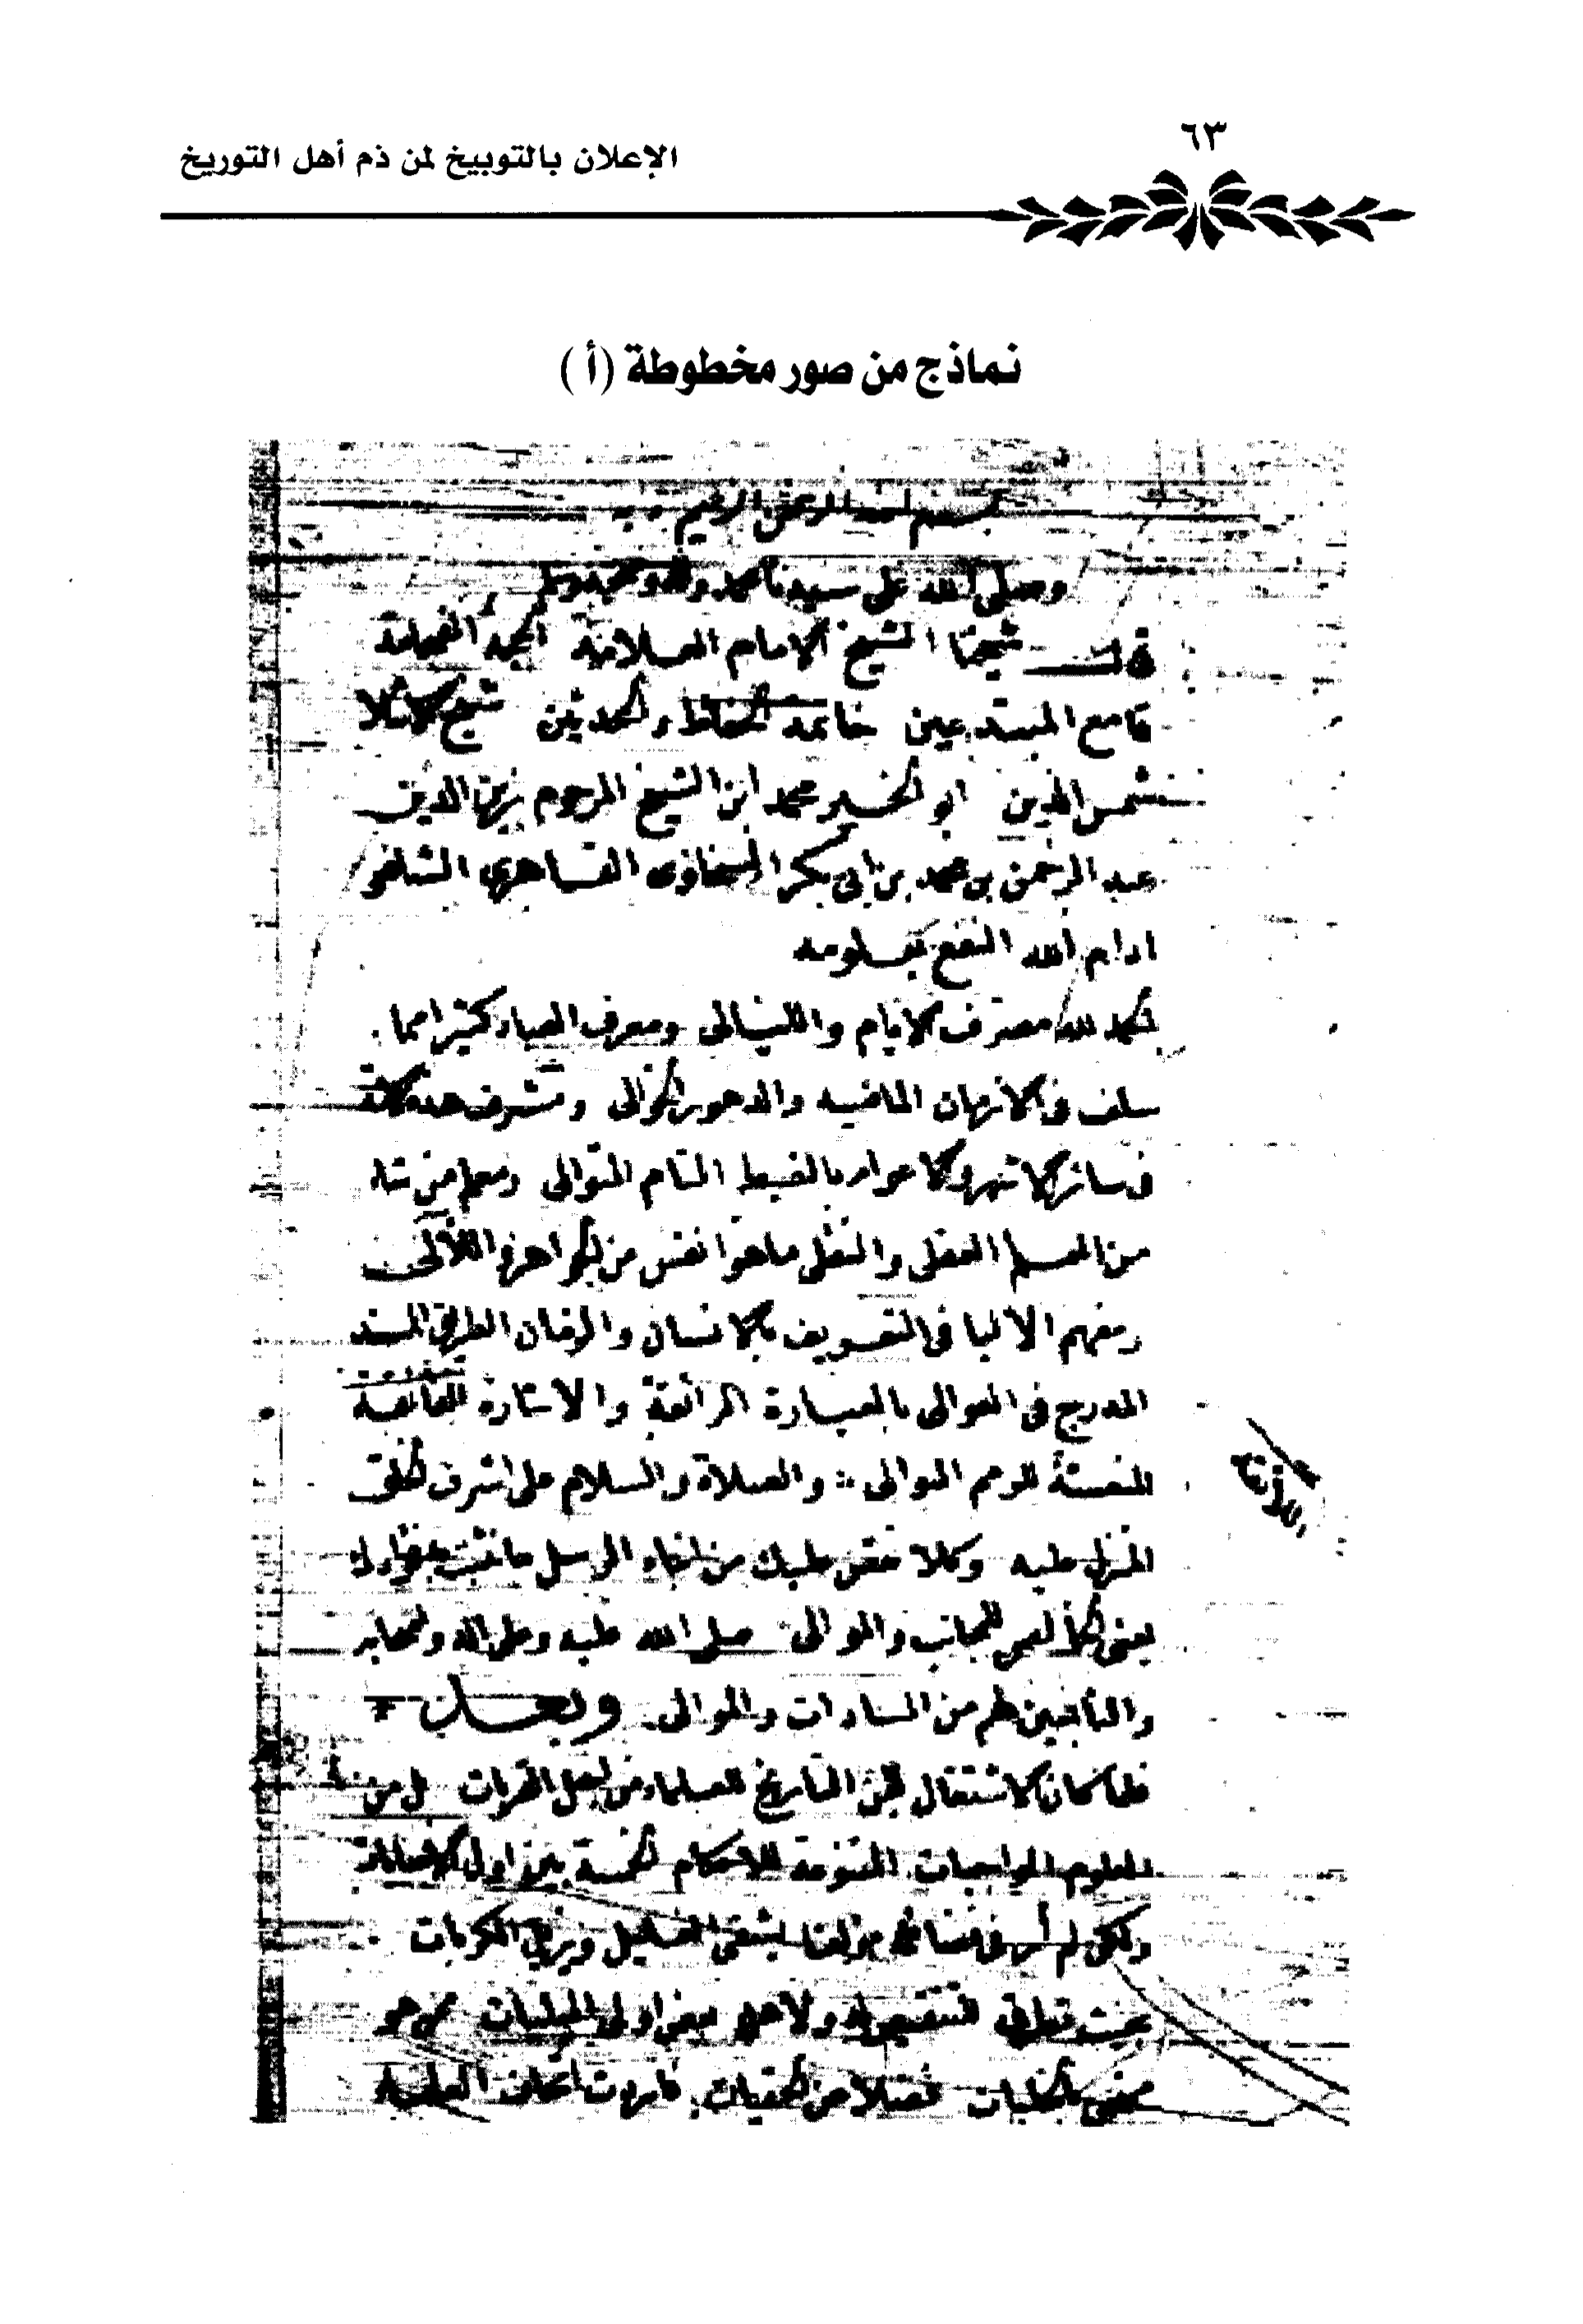 ٦٣
الإعلان بالتوبيخ لمن ذم أهل التوريخ
نماذج من صور مخطوطة (أ)
بسم الله الرحمن الرحيم وبه
وصلى الله على سيدنا محمد واله وصحبه وسلم
قال شيخنا الشيخ الامام العلامة الحجة الفهامة
قامع المبتدعين خاتمة الحفاظ والمحدثين شيخ الاسلام
شمس الدين ابو الخير محمد ابن الشيخ المرحوم زين الدين
عبد الرحمن بن محمد بن ابي بكر السخاوى القاهرى الشافعى
ادام الله النفع بعلومه
الحمد لله مصرف الايام والليالى ومعرف العباد كثيرا مما
سلف فى الازمان الماضيه والدهور الخوالى ومشرف هذه الامة
فى سائر الاشهر والاعوام بالضبط التام المتوالى ومعلم من شاء
من العلم العقلى والنقلى ما هو انفس من الجواهر واللآلئ
ومفهم الالبا فى التعريف بالانسان والزمان الطريق المسند
المدرج فى العوالى بالعبارة الرائقة والاشارة الفائقة
للوهم الموالى والصلاة والسلام على اشرف الخلق
المنزل عليه وكلا نقص عليك من انباء الرسل ما نثبت به فؤادك
للمجانب والموالى صلى الله عليه وعلى اله وصحابه
والتابعين لهم من السادات والموالى وبعد
فلما كان الاشتغال بفن التاريخ للعلماء من اجل القربات بل من
العلوم الواجبات المتنوعة للاحكام الخمسة بين اولى الاصابات
ولكن لم ار فى فضائله مؤلفا يشفى الغليل ويزيل الكربات
بحيث تطرق للتنقيص له ولاهله بعض اولى البليات ممن هو
ممتحن بالجليات فضلا عن الخفيات فاردت اتحاف العلماء